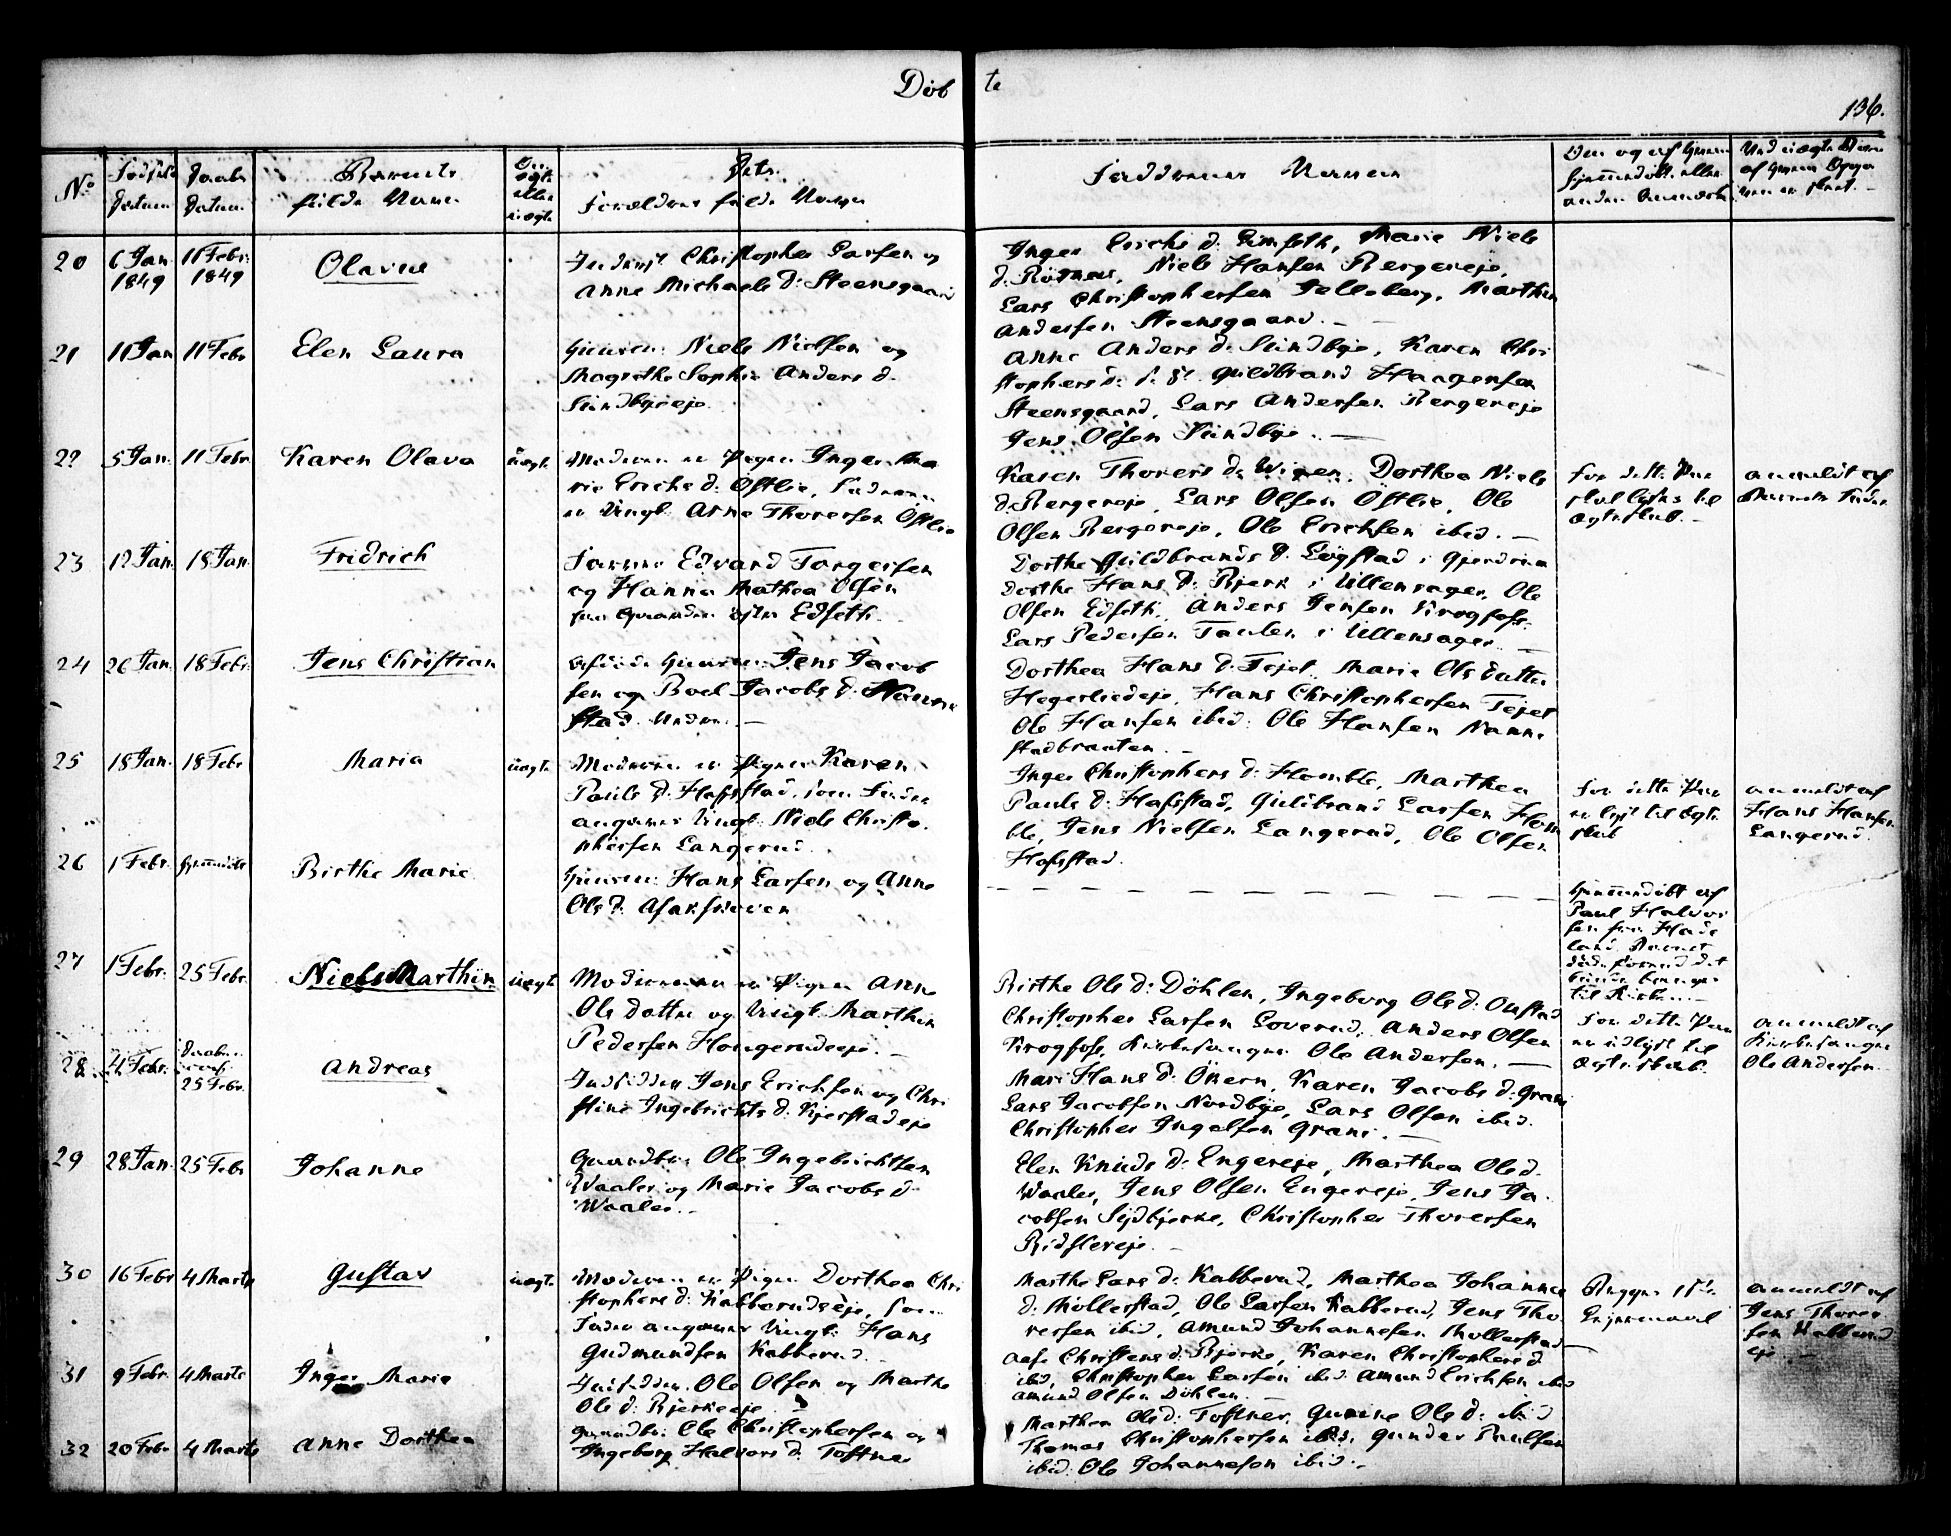 Döb te
136.
No
Fødsels Datum
Daabs Datum
Barnets fulde Navn
Om ægte eller uægte
Dets Forældres fulde Navne
Faddernes Navne
20 6 Jan. 1849 11 Febr. 1849 Olavus
Inderst Christopher Larsen og
Anne Michaels d: Steensgaard
Inger Erichs d. Rimseth, Marie Niels
d. Rötnes, Niels Hansen Bergereje,
Lars Christophersen Telleberg, Marthin
Andersen Steensgaard.
21 11 Jan 11 Febr Elen Laura
Huusm: Niels Nielsen og
Magrethe Sophie Anders d.
Sundbyeeje.
Anne Anders d: Sundbye, Karen Chri
stophers d: Guldbrand Haagensen
Steensgaard, Lars Andersen Bergereje
Jens Olsen Sundbye.
22 5 Jan. 11 Febr Karen Olava uægte
Moderen er Pigen Inger Ma
rie Erichs d: Östlie, Faderen
er Ungk. Arne Thoresen Östlie
Karen Thorers d. Wigen, Dorthea Niels
d. Bergereje, Lars Olsen Östlie, Ole
Olsen Bergereje, Ole Erichsen ibid.
For dette Par
skal lyses til
Ægteskab.
anmeldt af
Barnets Fader
23 12 Jan. 18 Jan. Fridrich
Edvard Torgersen
og Hanna Mathea Olsen
fra Edseth.
Dorthe Guldbrands d. Lögstad i Gjerdrum
Dorthe Hans d: Bjerk i Ullensager, Ole
Olsen Edseth, Anders Jensen Krogfoss
Lars Pedersen Taulen i Ullensager
24 26 Jan. 18 Febr. Jens Christian
Huusm: Jens Jacob
sen og Boel Jacobs d. Nanne
stad
Dorthea Hans d. Tejet, Marie Ols datter
Hegerliedeje, Hans Christophersen Tejet
Ole Hansen ibid. Ole Hansen Nanne
stadbraaten.
25 18 Jan. 18 Febr Maria uægte
Moderen er Pigen Karen
Pauls d. Hafstad, som Fader
angives Ungk: Niels Christo
phersen Langerud.
Inger Christophers d: Homble, Marthea
Pauls d. Hafsstad, Gulbrand Larsen Hom
ble, Jens Nielsen Langerud, Ole Olsen
Hafsstad.
For dette Par
er lyst til Ægte
skab
anmeldt af
Hans Hansen
Langerud.
26 1 Febr. Hjemmedöbt Birthe Marie
Huusm: Hans Larsen og Anne
Ols d: Asakskoven
Hjemmedöbt af
Paul Halvor
sen fra Hade
land. Barnet
döde forend det
kunde bringes
til Kirken.
27 1 Febr. 25 Febr. Niels Marthin uægte
Moderen er Pigen Anne
Ols datter og Ungk: Marthin
Pedersen Hougerudeje.
Birthe Ols d: Döhlen, Ingeborg Ols d: Onstad
Christopher Larsen Loverud. Anders Olsen
Krogfoss, Kirkesanger Ole Andersen.
For dette Par
er udlyst til
Ægteskab.
anmeldt af
Kirkesanger
Ole Andersen.
28 4 Febr. 25 Febr. Andreas
Indsidder Jens Erichsen og Chri
stine Ingebrichts d. Kjerstadeje
Mari Hans d: Ökern, Karen Jacobs d: Grani
Lars Jacobsen Nordbye, Lars Olsen ibid.
Christopher Ingelsen Grani.
29 28 Jan. 25 Febr Johanne
Gaardbr: Ole Ingebrichtsen
Waaler og Marie Jacobs d
Waaler.
Elen Knuds d: Engereje, Marthea Ols d.
Waaler, Jens Olsen Engereje, Jens Ja
cobsen Sydbjerke, Christopher Thorersen
Ridslereje.
30 16 Febr 4 Marts Gustav uægte
Moderen er Pigen Dorthea Chri
stophers d: Kabberudseje, som
Fader angives Ungk: Hans
Gudmundsen Kabberud.
Marthe Lars d: Kabberud, Marthea Johannes
d. Mollerstad, Ole Larsen Kabberud, Jens Tho
rersen ibid, Amund Johannesen Mollerstad
anmeldt af
Jens Thorer
sen Kabberud
eje
31 9 Febr. 4 Marts Inger Marie
Indsidder Ole Olsen og Marthe
Ols d: Bjerkeeje
Aase Christens d. Bjerke, Karen Christophers d
ibid, Christopher Larsen ibid. Amund Erichsen ibid
Amund Olsen Döhlen.
32 20 Febr 4 Marts Anne Dorthea
Gaardbr: Ole Christophersen og
Ingeborg Halvors d. Toftner
Marthea Ols d: Toftner, Gunine Ols d: ibid
Thomas Christophersen ibid, Gunder Paulsen
ibid. Ole Johannesen ibid.